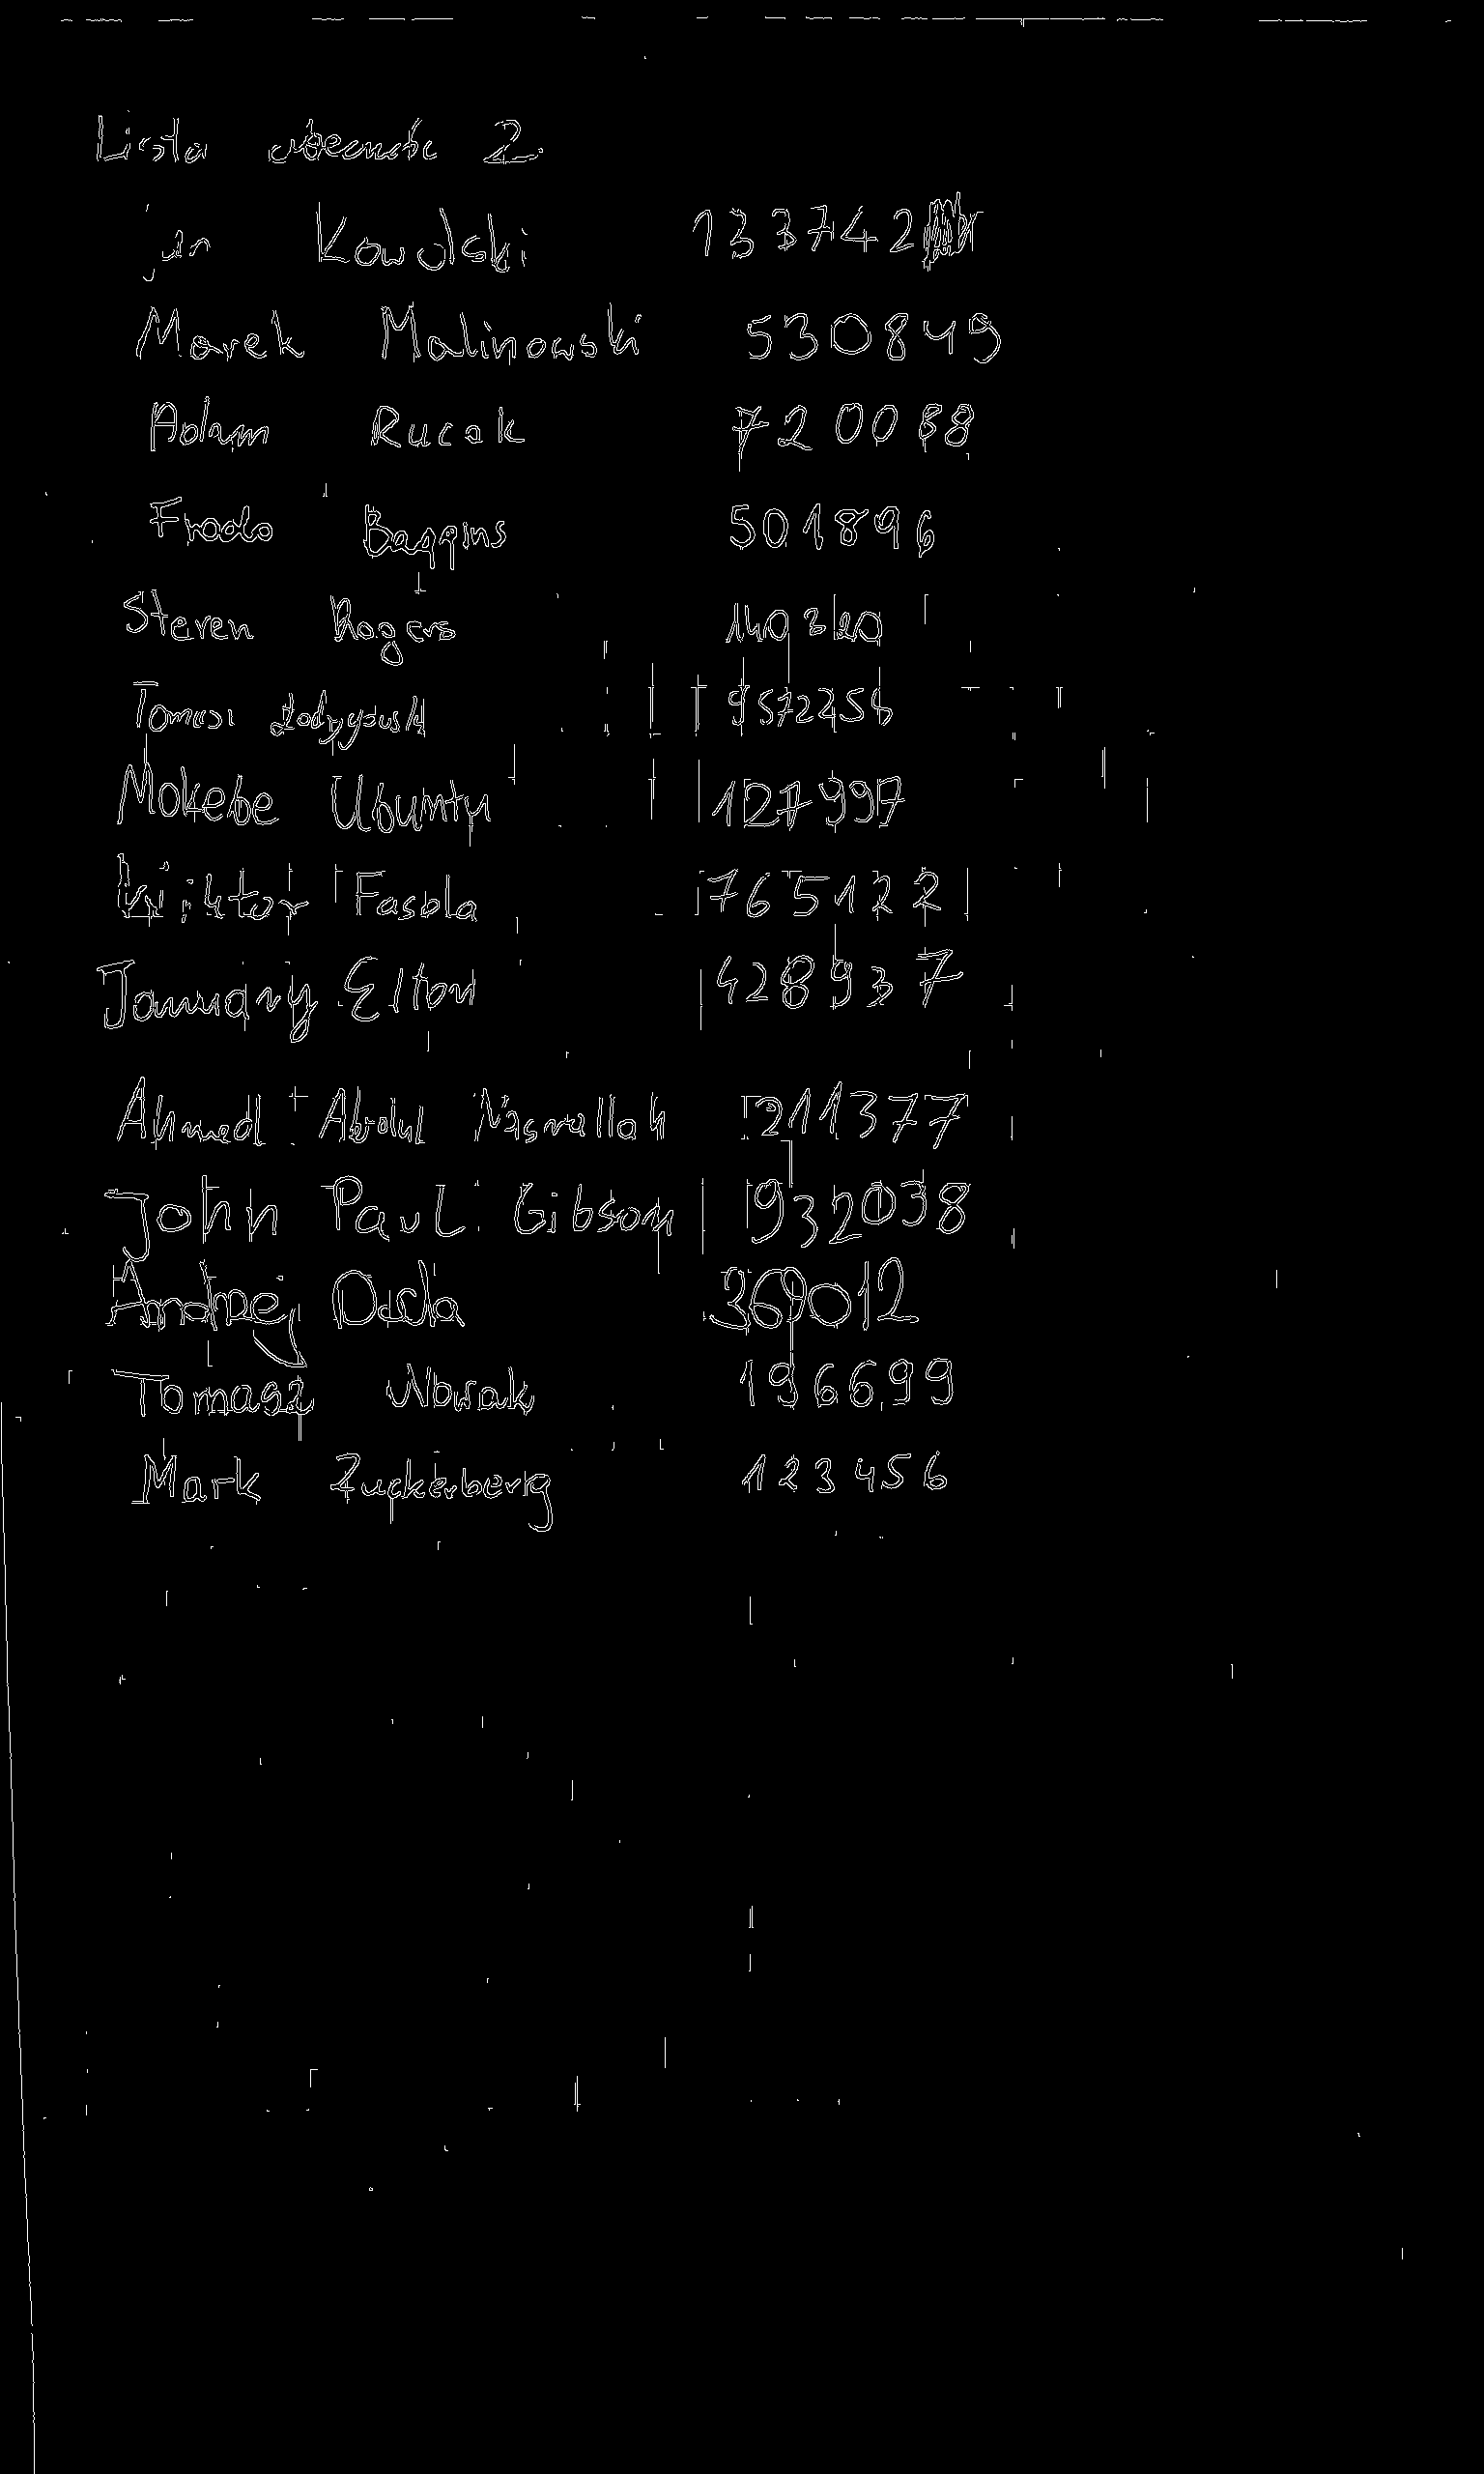 Lista obecności 2.
jan Kowalski 133742
Marek Malinowski 530849
Adam Rucak 720088
Frodo Baggins 501896
Steven Rogers 140320
Tomasz 9572256
Mokebe Ubuntu 127997
Wiktor Fasola 765122
January Elton 428937
Ahmed Abdul Nasrallah 211377
John Paul Gibson 932038
Andrzej Duda 369012
Tomasz Nowak 196699
Mark Zuckerberg 123456